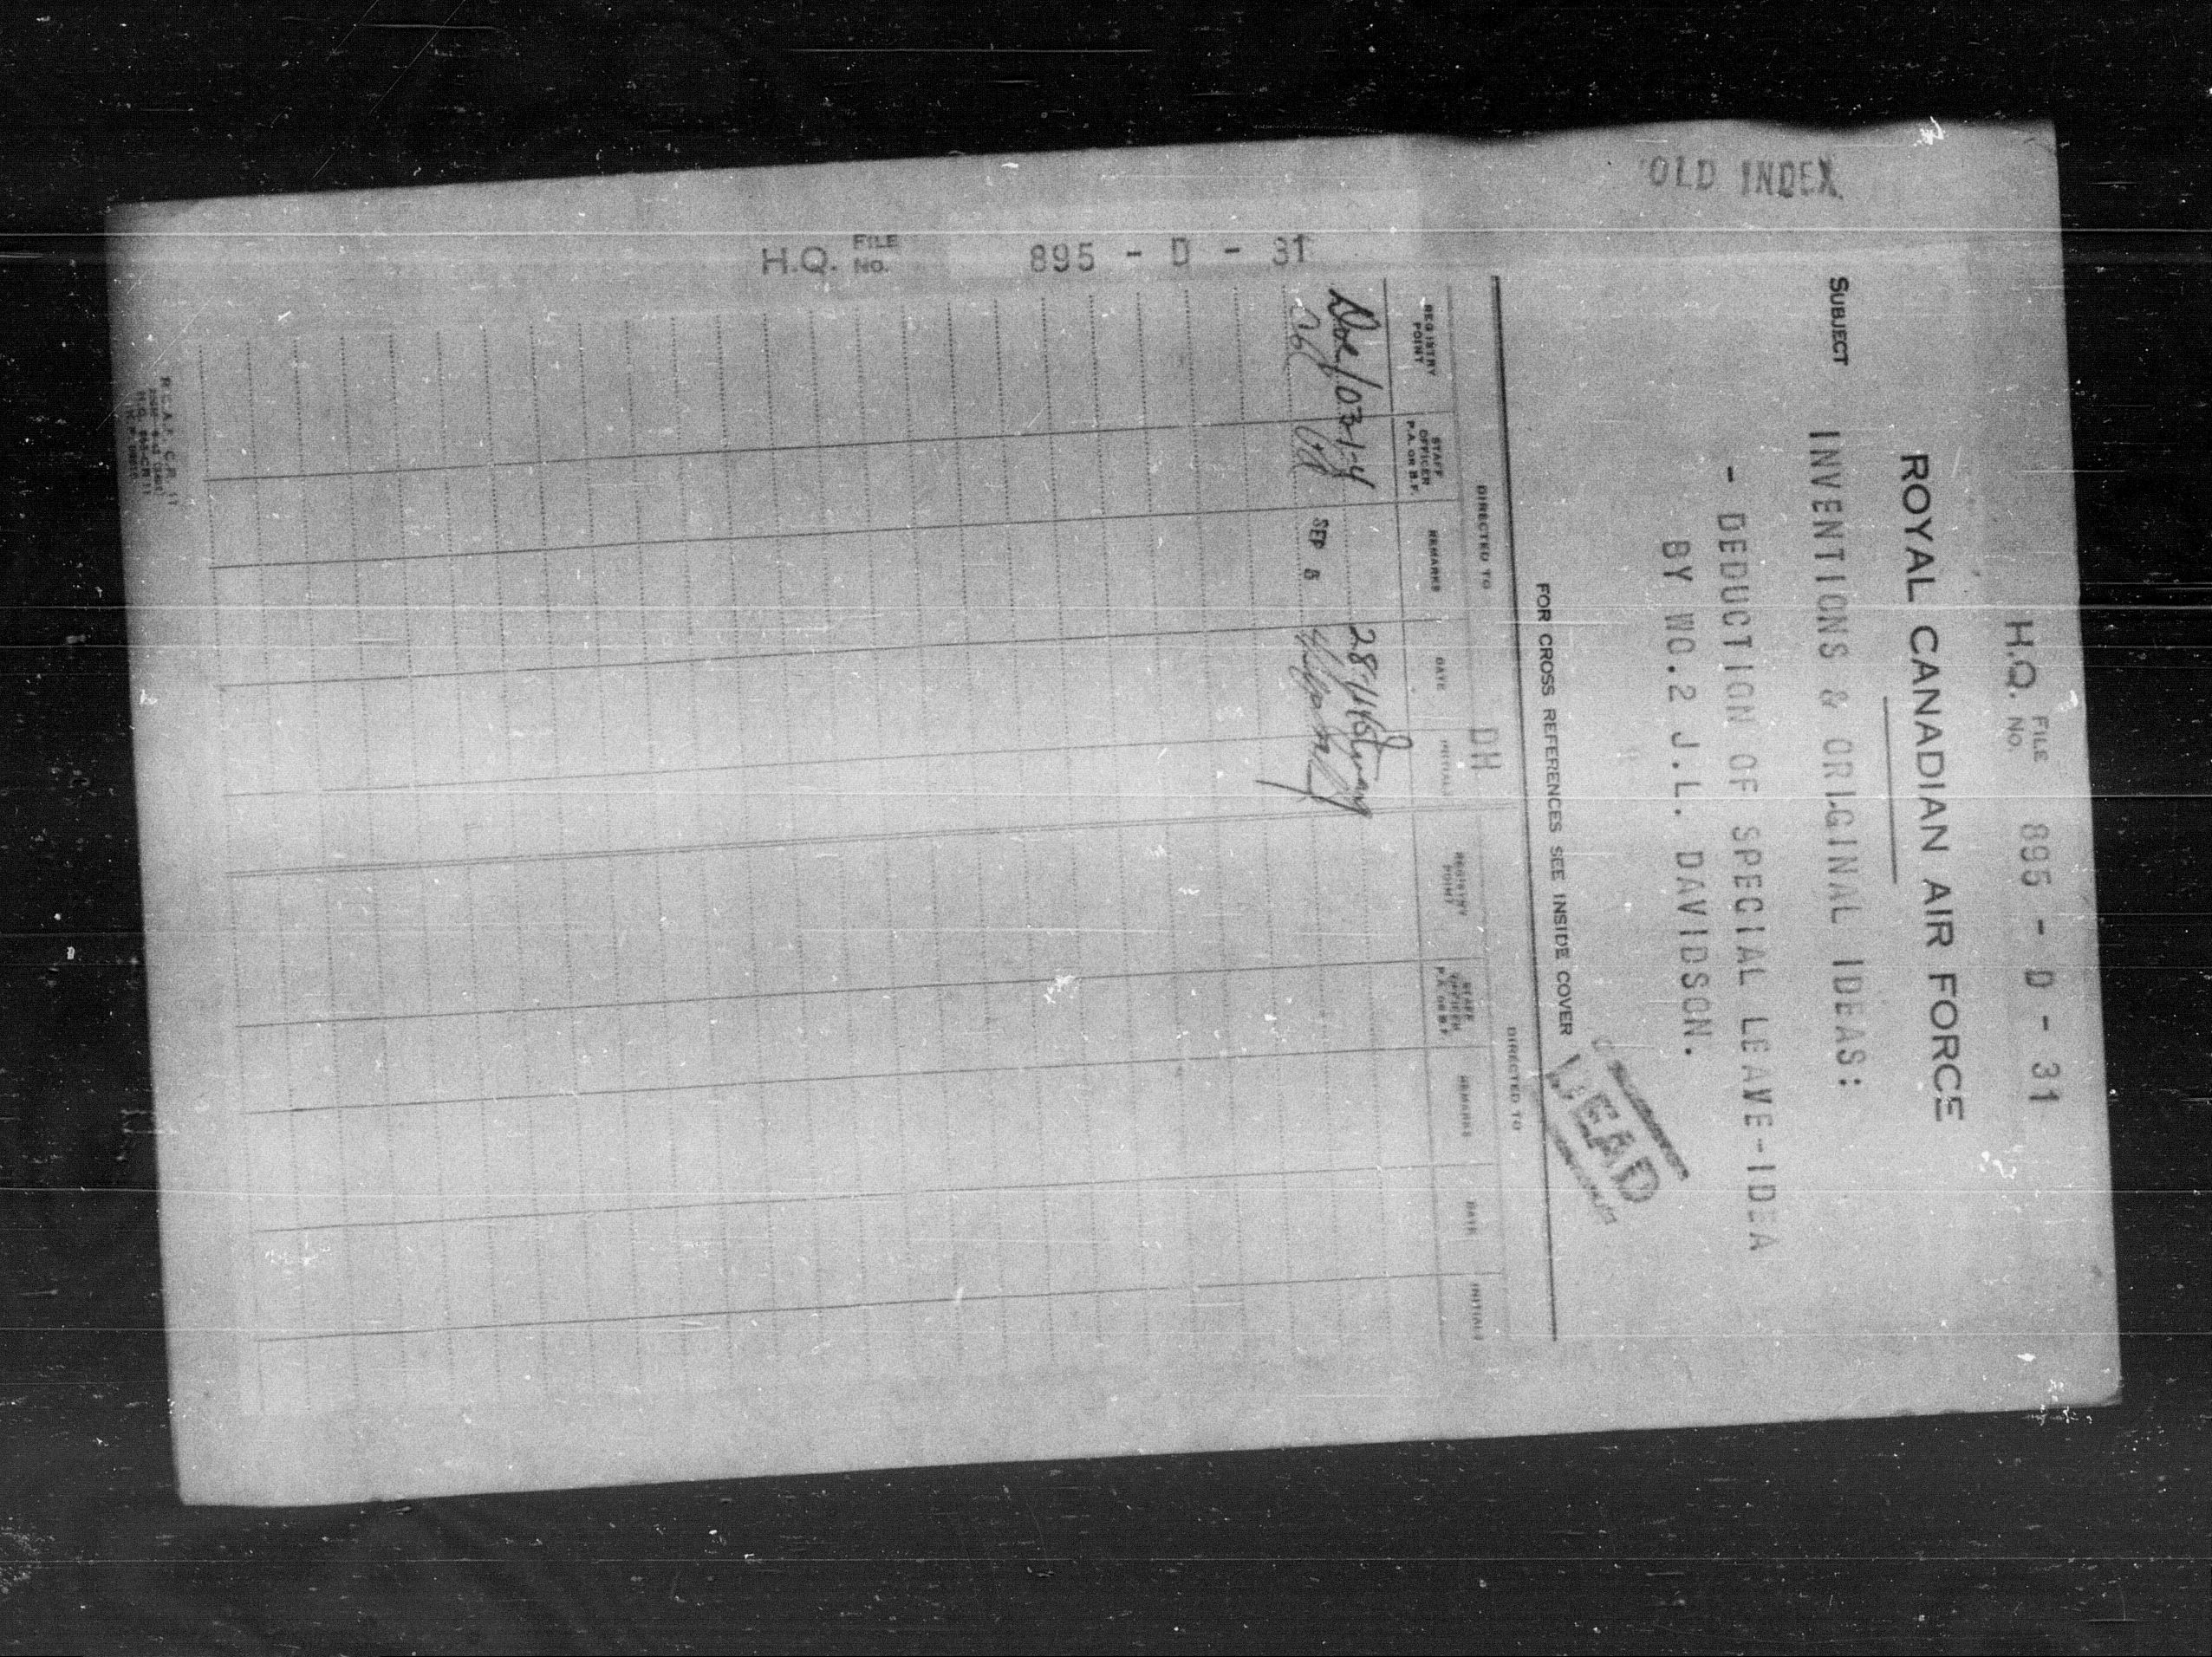 H.Q. FILE No. 895 - D - 31
ROYAL CANADIAN AIR FORCE
OLD INDEX
SUBJECT INVENTIONS & ORIGINAL IDEAS:
- DEDUCTION OF SPECIAL LEAVE-IDEA
BY WO.2 J.L. DAVIDSON.
DEAD
FOR CROSS REFERENCES SEE INSIDE COVER
DH
DIRECTED TO DIRECTED TO
REGISTRY POINT STAFF OFFICER P.A. OR B.F. REMARKS DATE INITIALS REGISTRY POINT STAFF OFFICER P.A. OR B.F. REMARKS DATE INITIALS
SEP 8
H.Q. FILE No. 895 - D - 31
R.C.A.F. C.R. 17